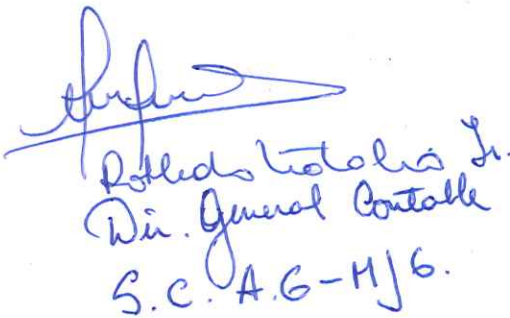 Robledo Natalia Jr.
Dir. General Contable
S.C.A.G-MJG.